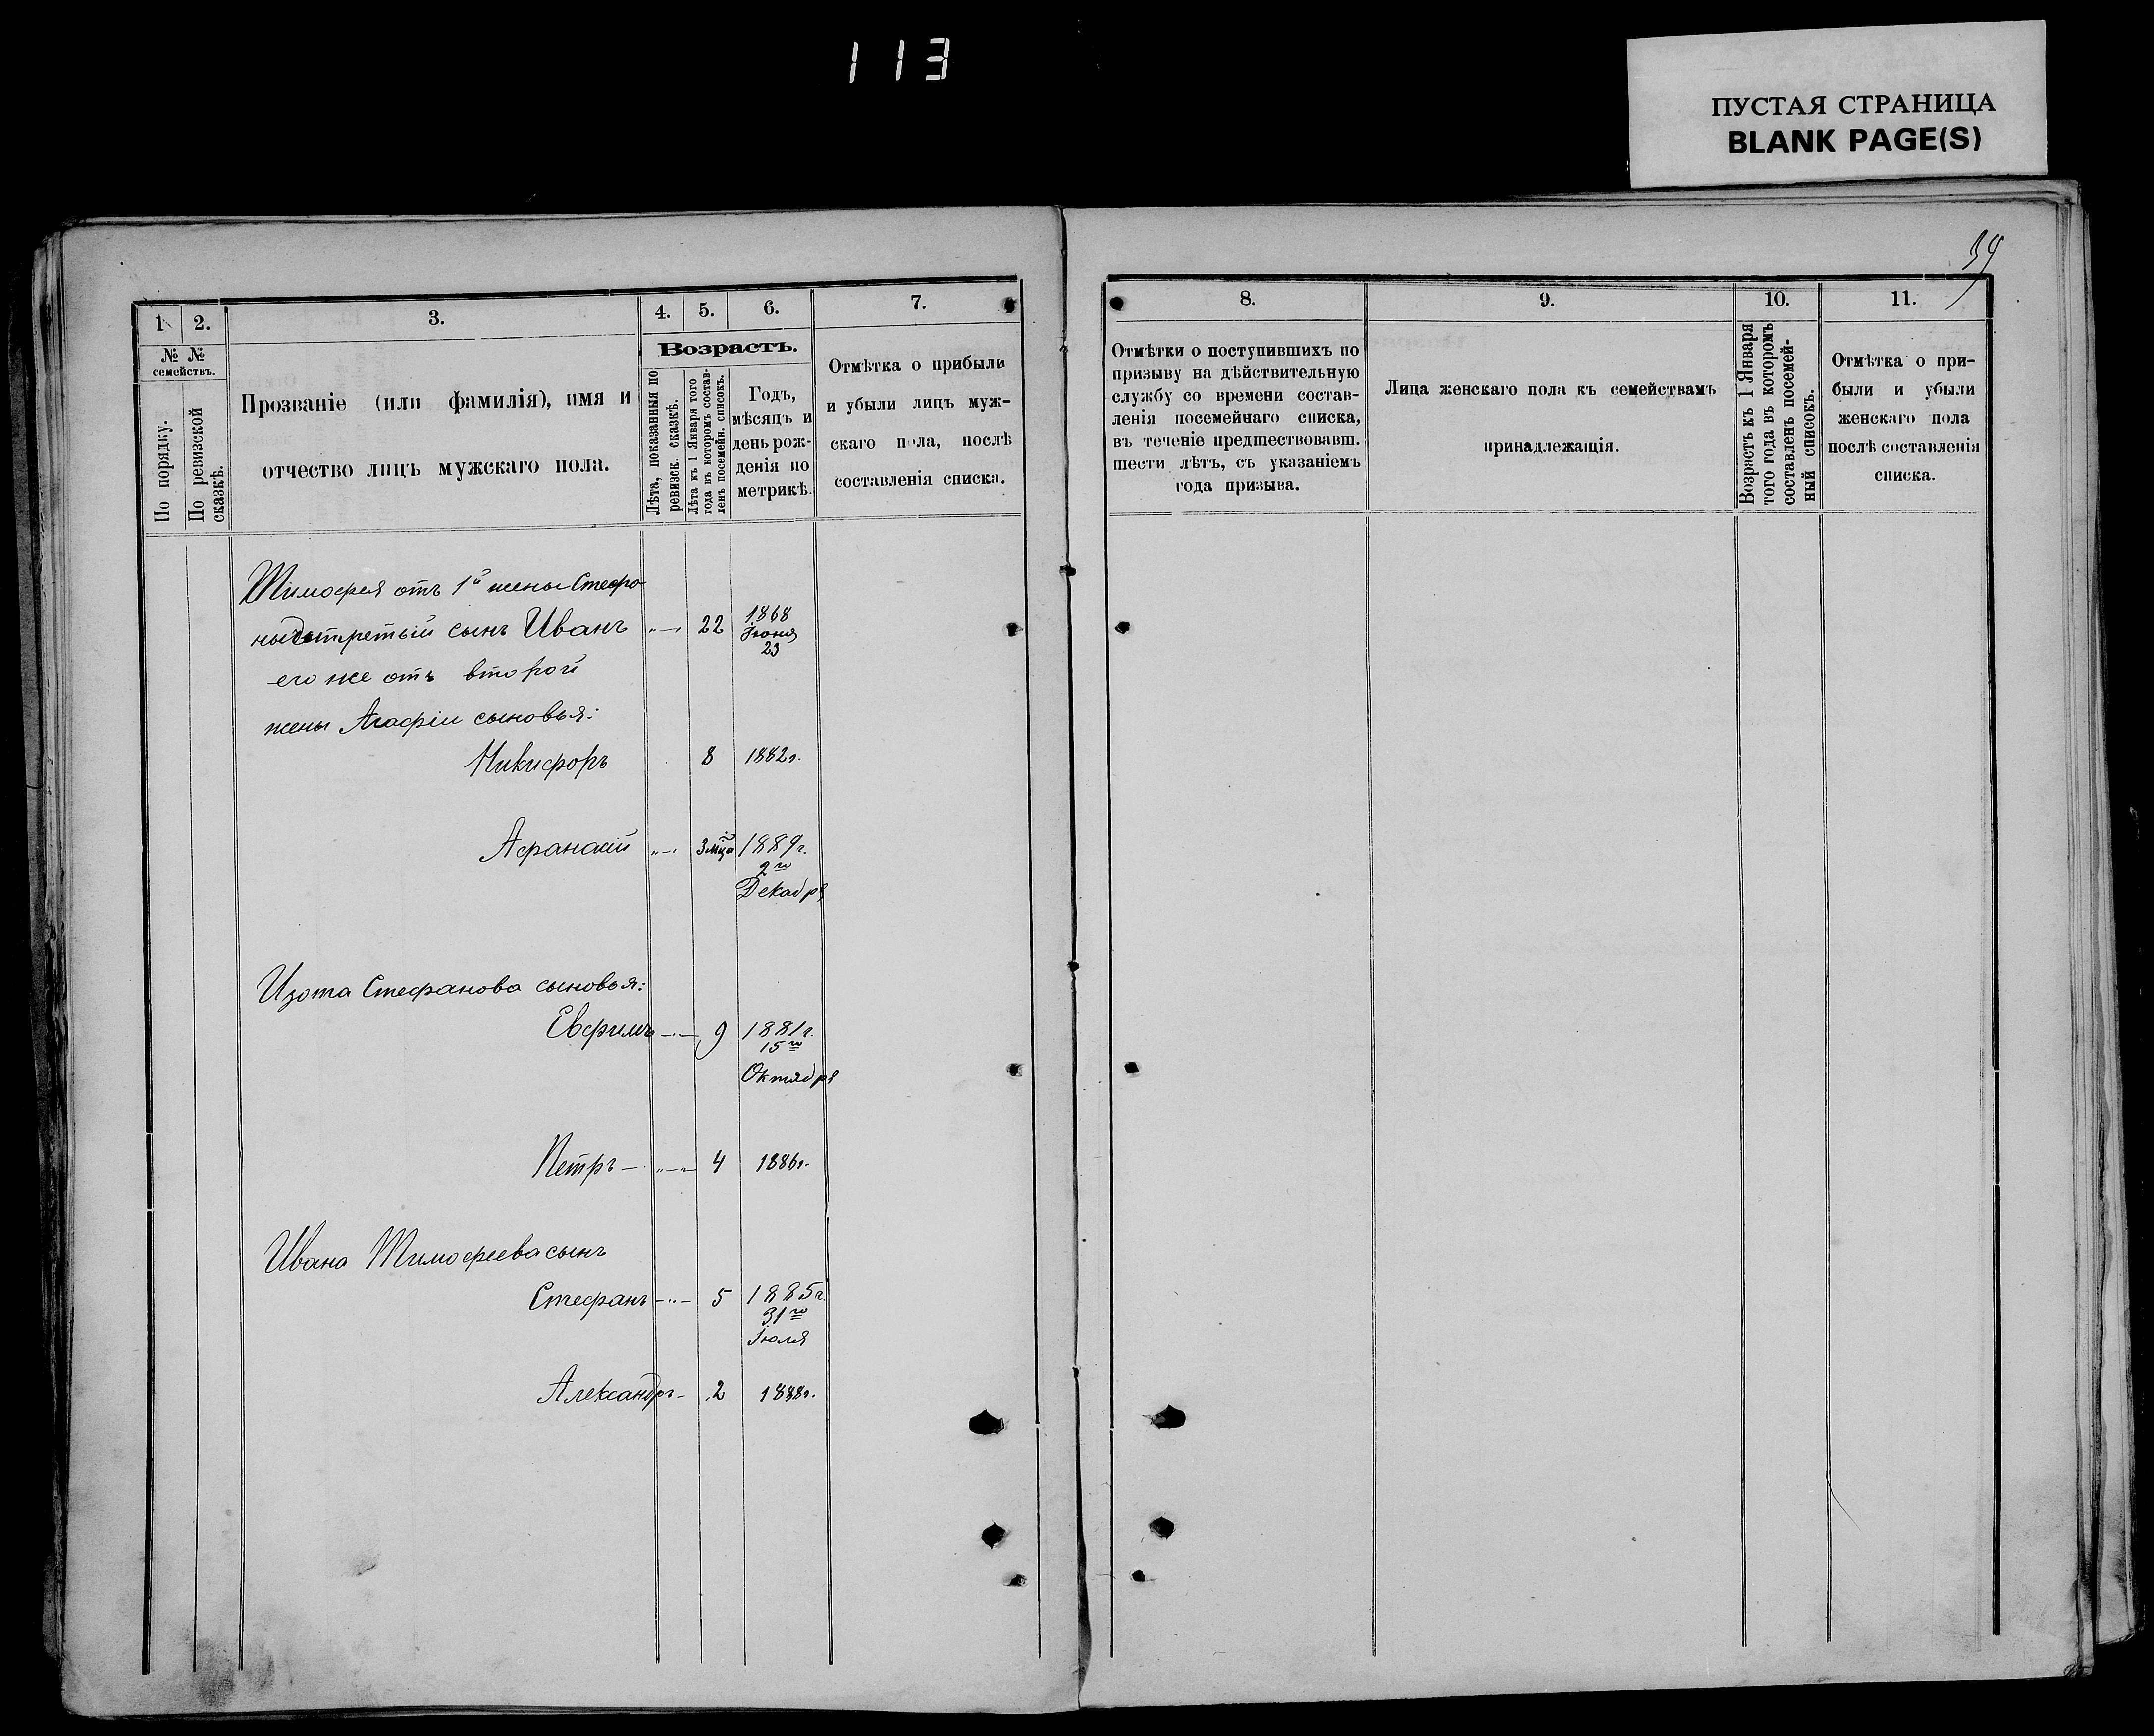 113
ПУСТАЯ СТРАНИЦА
BLANK PAGE(S)
39
1. 2. 3. 4. 5. 6. 7.
№ №
семействъ.
По порядку.
По ревизской
сказкѣ.
Прозваніе (или фамилія), имя и
отчество лицъ мужскаго пола.
Возрастъ.
Лѣта, показанныя по
ревизск. сказкѣ.
Лѣта къ 1 Января того
года въ которомъ состав-
ленъ посемейн. списокъ.
Годъ,
мѣсяцъ и
день рож-
денія по
метрикѣ.
Отмѣтка о прибыли
и убыли лицъ муж-
скаго пола, послѣ
составленія списка.
8. 9. 10. 11.
Отмѣтки о поступившихъ по
призыву на дѣйствительную
службу со времени состав-
ленія посемейнаго списка,
въ теченіе предшествовавш.
шести лѣтъ, съ указаніемъ
года призыва.
Лица женскаго пола къ семействамъ
принадлежащія.
Возрастъ къ 1 Января
того года въ которомъ
составленъ посемей-
ный списокъ.
Отмѣтка о при-
были и убыли
женскаго пола
послѣ составленія
списка.
Тимофея отъ 1й жены Стефа-
ниды третьій сынъ Иванъ 22 1868
Іюня
23
его же отъ второй
жены Агафіи сыновья:
Никифоръ 8 1882г.
Афанасій 3 мца 1889г.
2го
Декабря
Изота Стефанова сыновья:
Евфимъ 9 1881г.
15го
Октября
Петръ 4 1886г.
Ивана Тимофеева сынъ
Стефанъ 5 1885г.
31го
Іюля
Александръ 2 1888г.